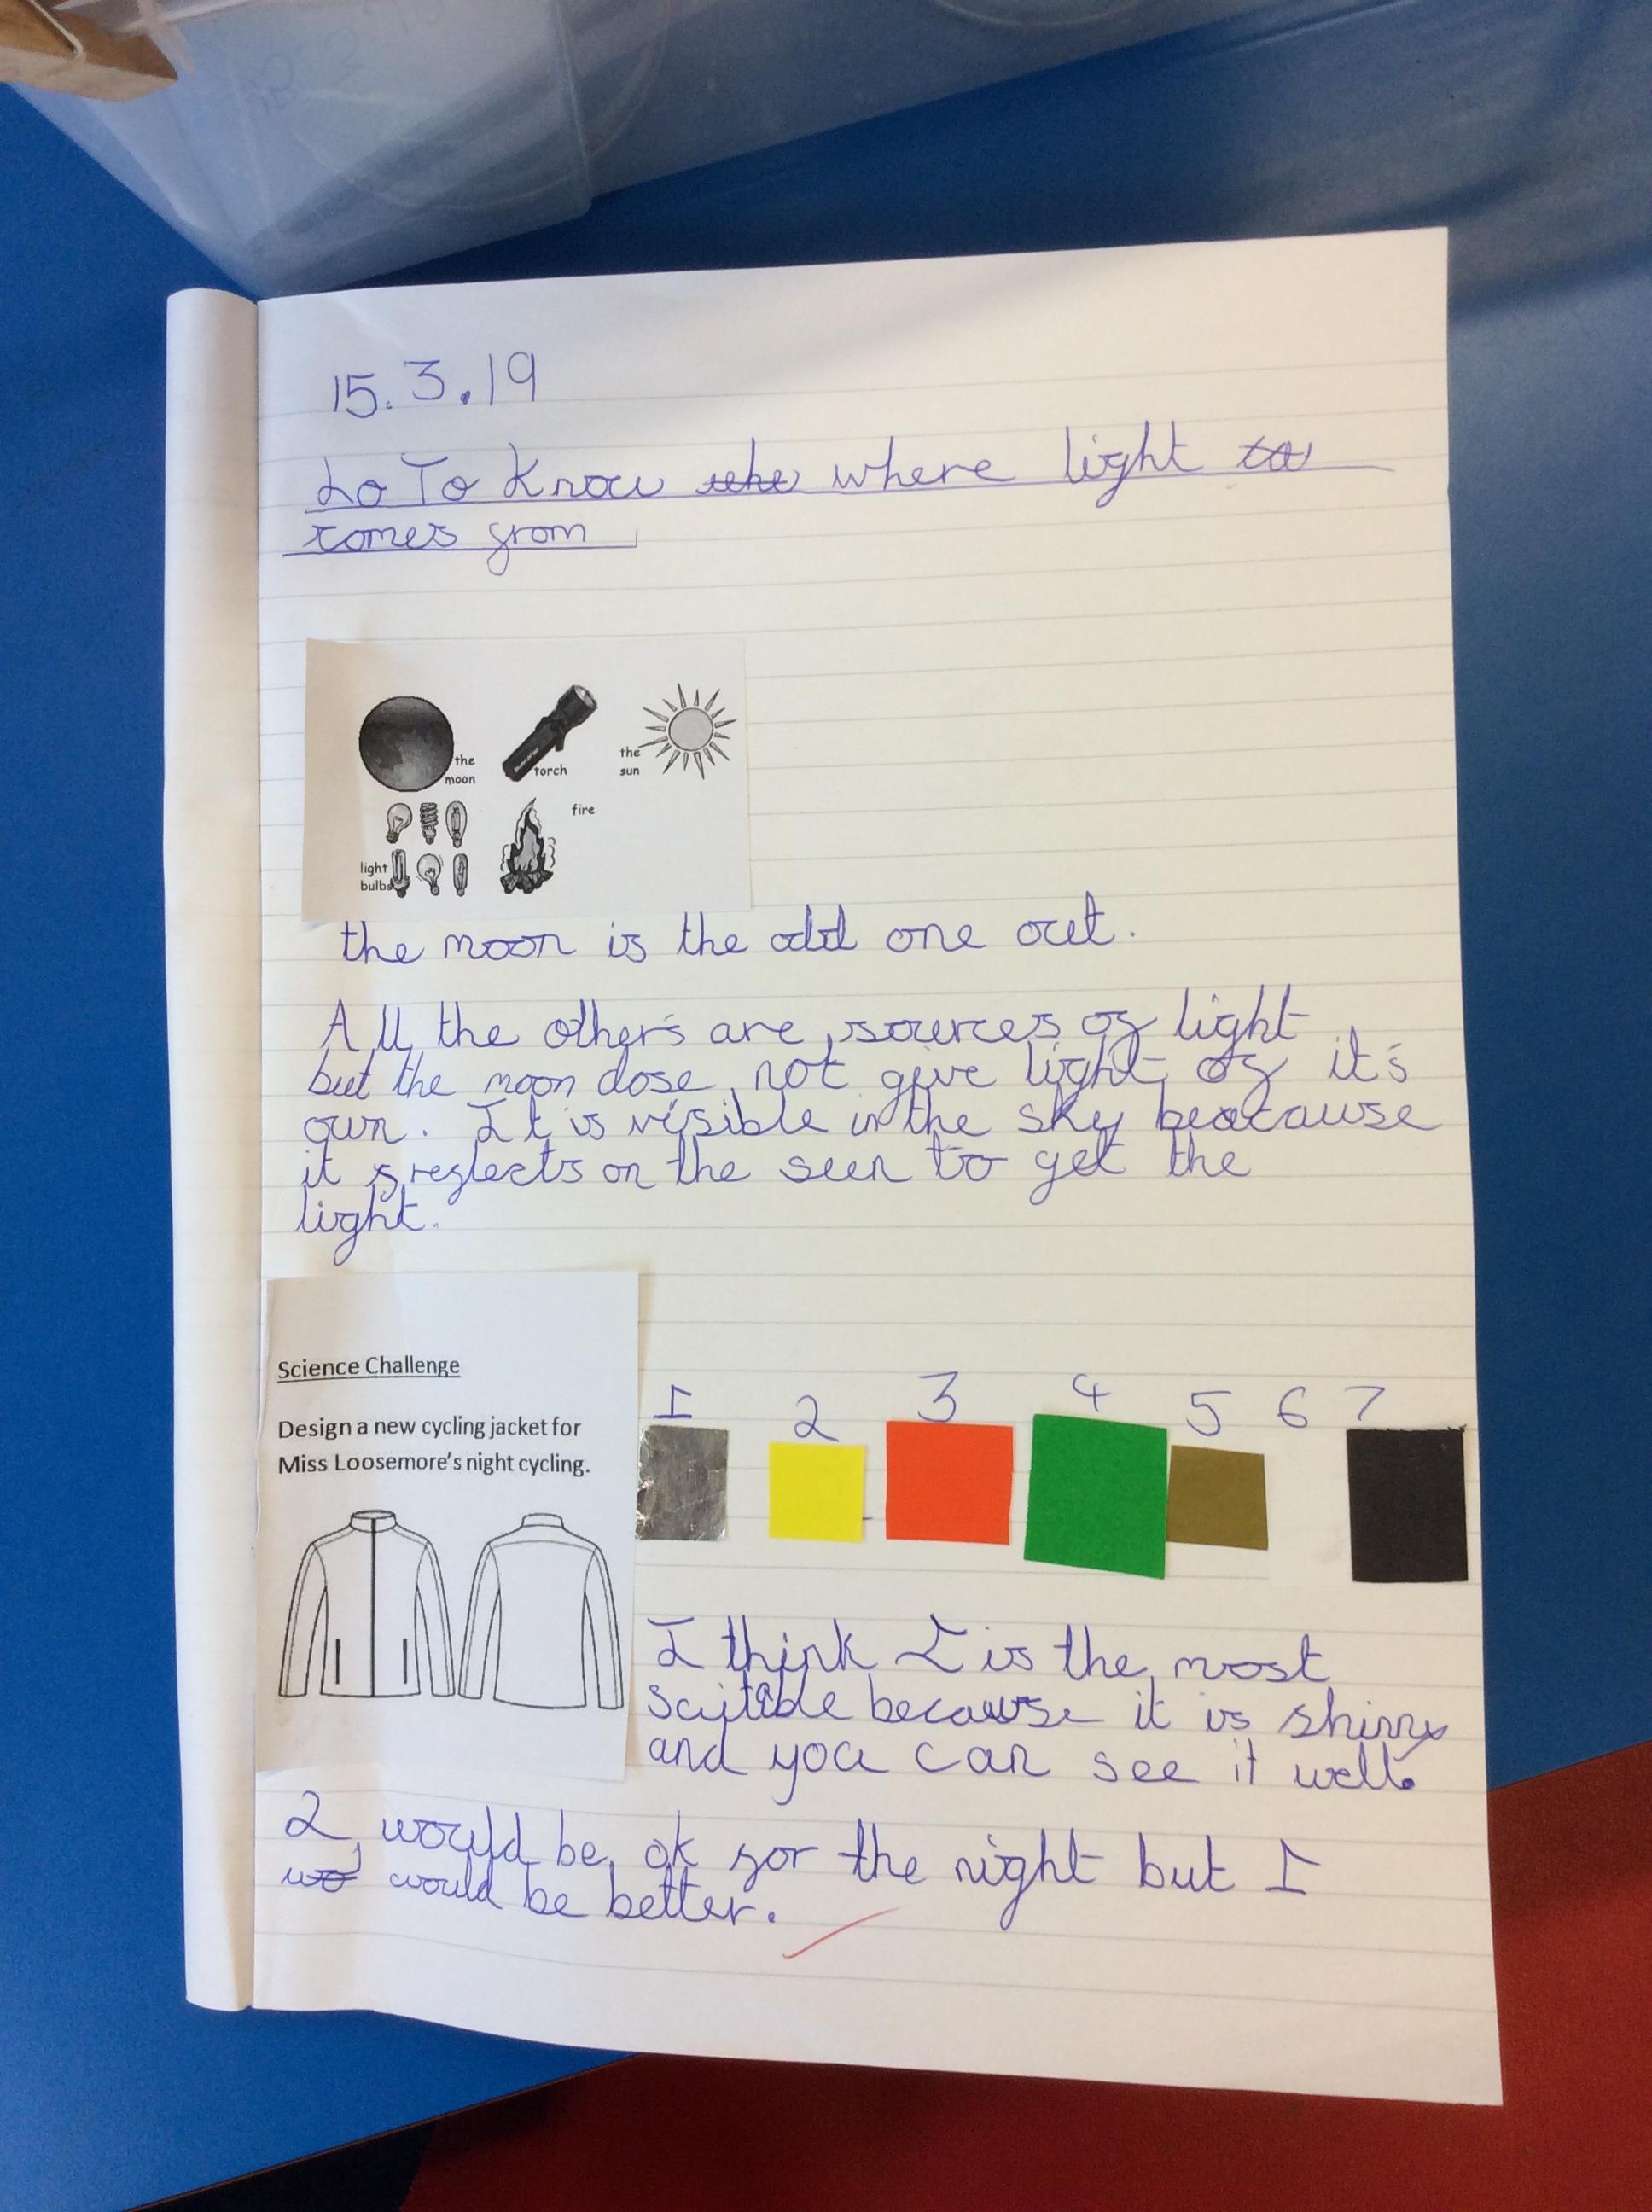 15.3.19
Lo To Know where light
comes from
the
moon
torch
the
sun
light
bulbs
fire
the moon is the odd one out.
All the others are sources of light
but the moon dose not give light of it's
own. It is visible in the sky beacause
it reflects on the sun to get the
light.
Science Challenge
Design a new cycling jacket for
Miss Loosemore's night cycling.
1 2 3 4 5 6 7
I think 1 is the most
suitible because it is shiny
and you can see it well.
2 would be ok for the night but 1
would be better.